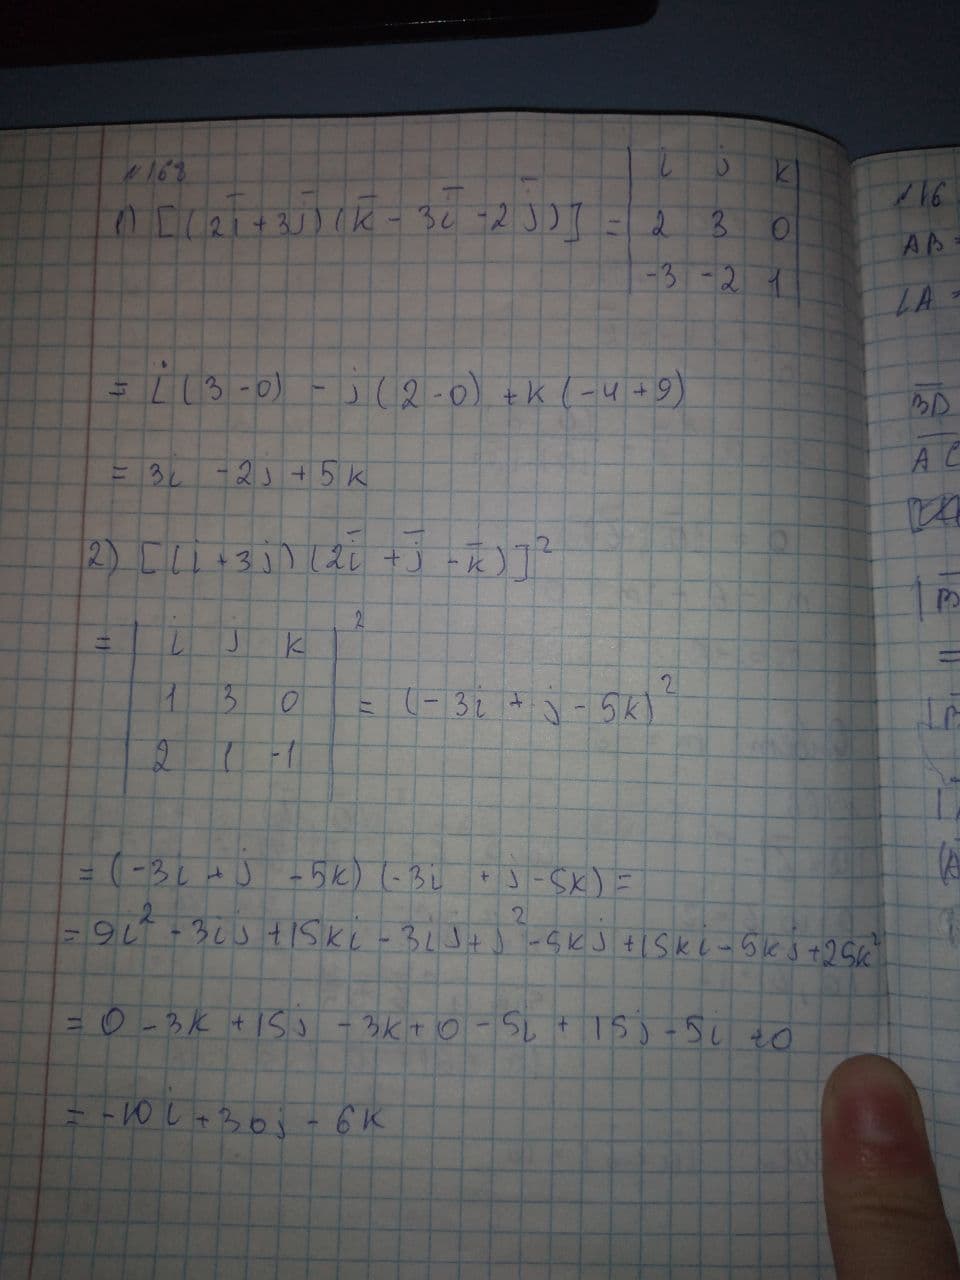 №168
1) [(2i̅+3j̅)(k̅-3i̅-2j̅)] = | i j k |
| 2 3 0 |
| -3 -2 1 |
= i(3-0) - j(2-0) + k(-4+9)
= 3i -2j+5k
2) [(i+3j)(2i̅+j̅-k̅)]²
= | i j k |²
| 1 3 0 | = (-3i + j - 5k)²
| 2 1 -1 |
= (-3i + j - 5k)(-3i + j - 5k) =
= 9i² - 3ij + 15ki - 3ij + j² - 5kj + 15ki - 5kj + 25k²
= 0 - 3k + 15j - 3k + 0 - 5i + 15j - 5i + 0
= -10i + 30j - 6k
№16
AB =
∠A =
B̅D̅
A̅C̅